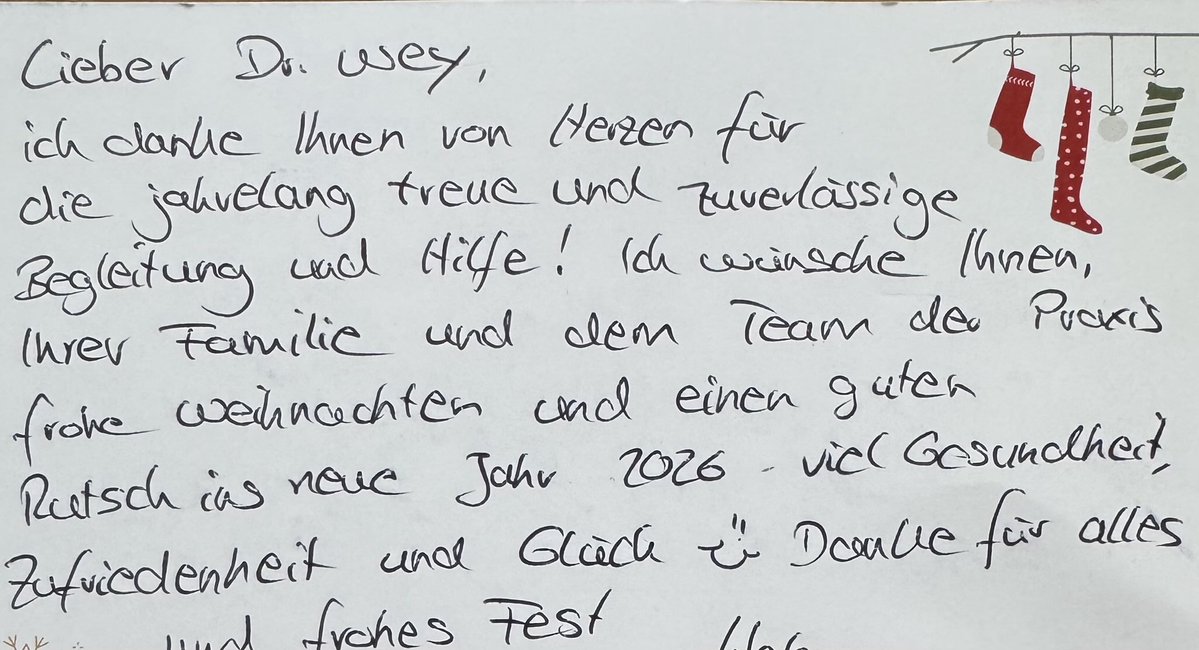 Lieber Dr. Wey,
ich danke Ihnen von Herzen für
die jahrelang treue und zuverlässige
Begleitung und Hilfe! Ich wünsche Ihnen,
Ihrer Familie und dem Team der Praxis
frohe Weihnachten und einen guten
Rutsch ins neue Jahr 2026 - viel Gesundheit,
Zufriedenheit und Glück :) Danke für alles
und frohes Fest